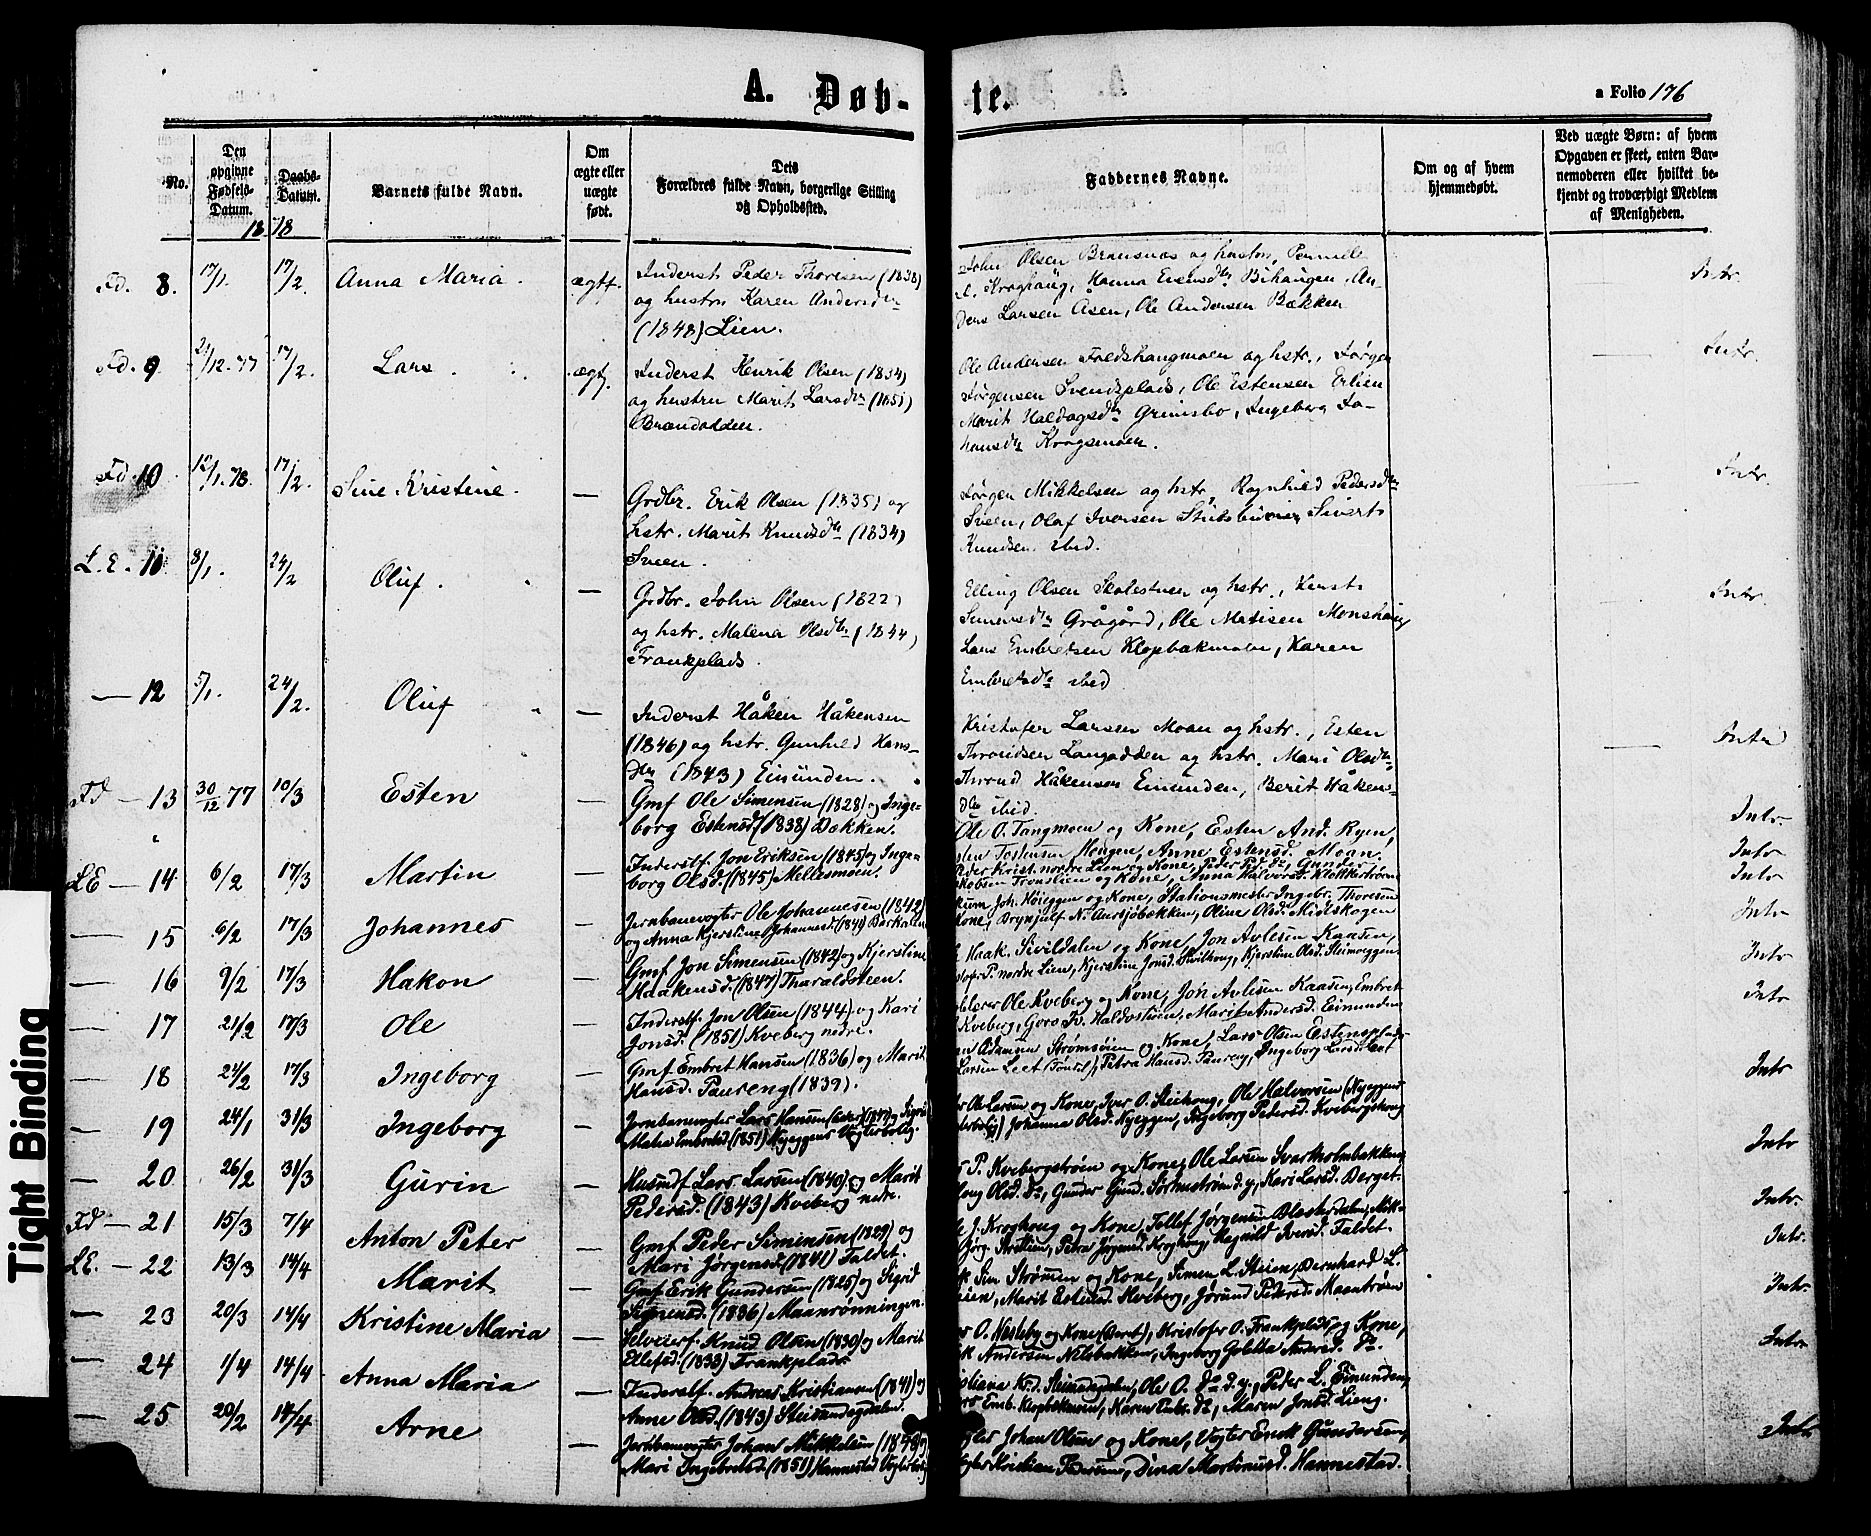 A. Døb-
te.
a Folio 176
No.
Den opgivne Fødsels-Datum.
Daabs-Datum.
Barnets fulde Navn.
Om ægte eller uægte født.
Dets Forældres fulde Navn, borgerlige Stilling og Opholdssted.
Faddernes Navne.
Om og af hvem hjemmedøbt.
Ved uægte Børn: af hvem Opgaven er skeet, enten Barnemoderen eller hvilket bekjendt og troværdigt Medlem af Menigheden.
1878
Fd. 8. 17/1. 17/2. Anna Maria. ægte.
Inderst Peder Thoresen (1838)
og hustru Karen Andersdtr
(1848) Lien.
John Olsen Bransnes og hustru, Pernille
Kroghaug, Hanna Bihaugen, An-
ders Larsen Åsen, Ole Andersen Bækken
Intr.
Fd. 9 21/12.77 17/2. Lars ægt.
Inderst Henrik Olsen (1834)
og hustru Marit Larsdtr (1851)
Brandodden.
Ole Andersen Foldshaugmoen og hstr., Jørgen
Jørgensen Svendsplads, Ole Estensen Erlien
Marit Haldogsdtr Grimsbo, Ingeborg Jo-
hansdtr Krogsmoen.
Intr.
Fd. 10 12/1.78. 17/2. Sine Kristine. —
Grdbr. Erik Olsen (1835) og
hstr. Marit Knudsdtr (1834)
Sveen.
Jørgen Mikkelsen og hstr, Ragnhild Pedersdtr
Sveen, Olaf Iversen Sivert
Knudsen ibid.
Intr.
L.E. 11 8/1. 24/2 Oluf. —
Grdbr. John Olsen (1822)
og hstr. Malena Olsdtr (1844)
Frankplads.
Elling Olsen Skolestuen og hstr.,
Simensdtr Grågård, Ole Matisen Monshaug
Lars Embretsen Klopbakmoen, Karen
Embretsdtr ibid
Intr.
— 12 5/1. 24/2. Oluf —
Inderst Håken Håkensen
(1846) og hstr. Gunhild Hans-
dtr (1843) Einunden.
Kristofer Larsen Moan og hstr., Esten
Throndsen Langodden og hstr. Mari Olsdtr
Thrond Håkensen Einunden, Berit Håkens-
dtr ibid.
Intr
Fd — 13 30/12 77 10/3 Esten —
Gmf Ole Simensen (1828) og Inge-
borg Estensd (1838) Bækken.
Ole O. Tangmoen og Kone, Esten And. Ryen,
Tostensen Haugen, Anne Estensd. Moan.
Intr.
LE — 14 6/2 17/3 Martin —
Inderstf. Jon Eriksen (1845) og Inge-
borg Olsd. (1845) Mellesmoen.
Krist. nordre Lien og Kone, Peder Ped. do, Gunder
Tronslien og Kone, Anna Halvorsd. Klokkerstrøm
Intr
— 15 6/2 17/3 Johannes —
Jernbanevogter Ole Johannesen (1842)
og Anna Kjerstine Johannesd. (1849) Barkalden
Joh. Høieggen og Kone, Stationsmester Ingebr. Thoresen
Kone, Brynjulf N. Aursjøbækken, Oline Olsd. Midtskogen
Intr
— 16 9/2 17/3 Hakon —
Gmf Jon Simensen (1842) og Kjerstine
Haakensd. (1847) Tharaldsteen.
Haak. Sivildalen og Kone, Jon Avlesen Kaasen,
P. nordre Lien, Kjerstine Jonsd. Hvilhoug, Kjerstine Olsd. Steimoeggen
Intr
— 17 21/2 17/3 Ole —
Inderstf. Jon Olsen (1844) og Kari
Jonsd. (1851) Kveberg nedre.
Ole Kveberg og Kone, Jon Avlesen Kaasen, Embret
Kveberg, Goro Haldostuen, Marit Andersd. Einunden
Intr
— 18 24/2 17/3 Ingeborg —
Gmf Embret Hansen (1836) og Marit
Hansd. Paureng (1839).
Adamsen Strømsøien og Kone, Lars Olsen Estensplads
Larsen Leet (Tønset), Petra Hansd. Paureng, Ingeborg Larsd.
Intr
— 19 24/1 31/3 Ingeborg —
Jernbanevogter Lars Hansen
Embretsd. (1851) Nyeggens Vogterbolig.
Ole Larsen og Kone, Iver O. Steihoug, Ole Halvorsen (Nyeggens
Johanna Olsd. Nyeggen, Ingeborg Pedersd. Kveberghoug
Intr
— 20 26/2 31/3 Gurin —
Husmf Lars Larsen (1840) og Marit
Pedersd. (1843) Kveberg nedre.
P. Kvebergstrøen og Kone, Ole Larsen Svartholmbakken,
Olsd. do, Gunder Gund. Sørhusstrøm d.y., Kari Larsd. Berget.
Intr.
Fd — 21 15/3 7/4 Anton Peter —
Gmf Peder Simensen (1829) og
Mari Jørgensd. (1841) Faldet.
J. Kroghoug og Kone, Tollef Jørgensen
Jørg. Petra Jørgensd. Kroghoug, Ragnild Iversd. Faldet.
Intr.
LE. — 22 13/3 14/4 Marit —
Gmf Erik Gundersen (1825) og Sigrid
Simensd. (1836) Maanrønningen.
Sim Strømen og Kone, Simen L. Steien, Bernhard L.
Marit Estensd. Kveberg, Jørund Pedersd. Maanstrøen
Intr.
— 23 20/3 14/4 Kristine Maria —
Selveierf. Knud Olsen (1830) og Marit
Ellefsd. (1833) Frankplads.
O. Nesteby og Kone (Beret), Kristofer O. Frankplads og Kone,
Andersen Nilsbakken, Ingeborg Andersd. do.
Intr.
— 24 1/4 14/4 Anna Maria —
Inderstf. Andreas Kristiansen (1841) og
Anne Olsd. (1843) Steisandegdalen.
Ole O. do d.y., Peder L. Einunden,
Emb. Klopbakmoen, Karen Embr. do, Maren Jonsd. Lieng.
— 25 20/2 14/4 Arne —
Jernbanevogter Johan Mikkelsen
Mari Ingebretsd. (1851) Hannestad Vogterbolig
Johan Olsen og Kone, Vogter Endt Gundersen,
Kristian Pedersen, Dina Martinusd. Hannestad.
Intr
Tight Binding